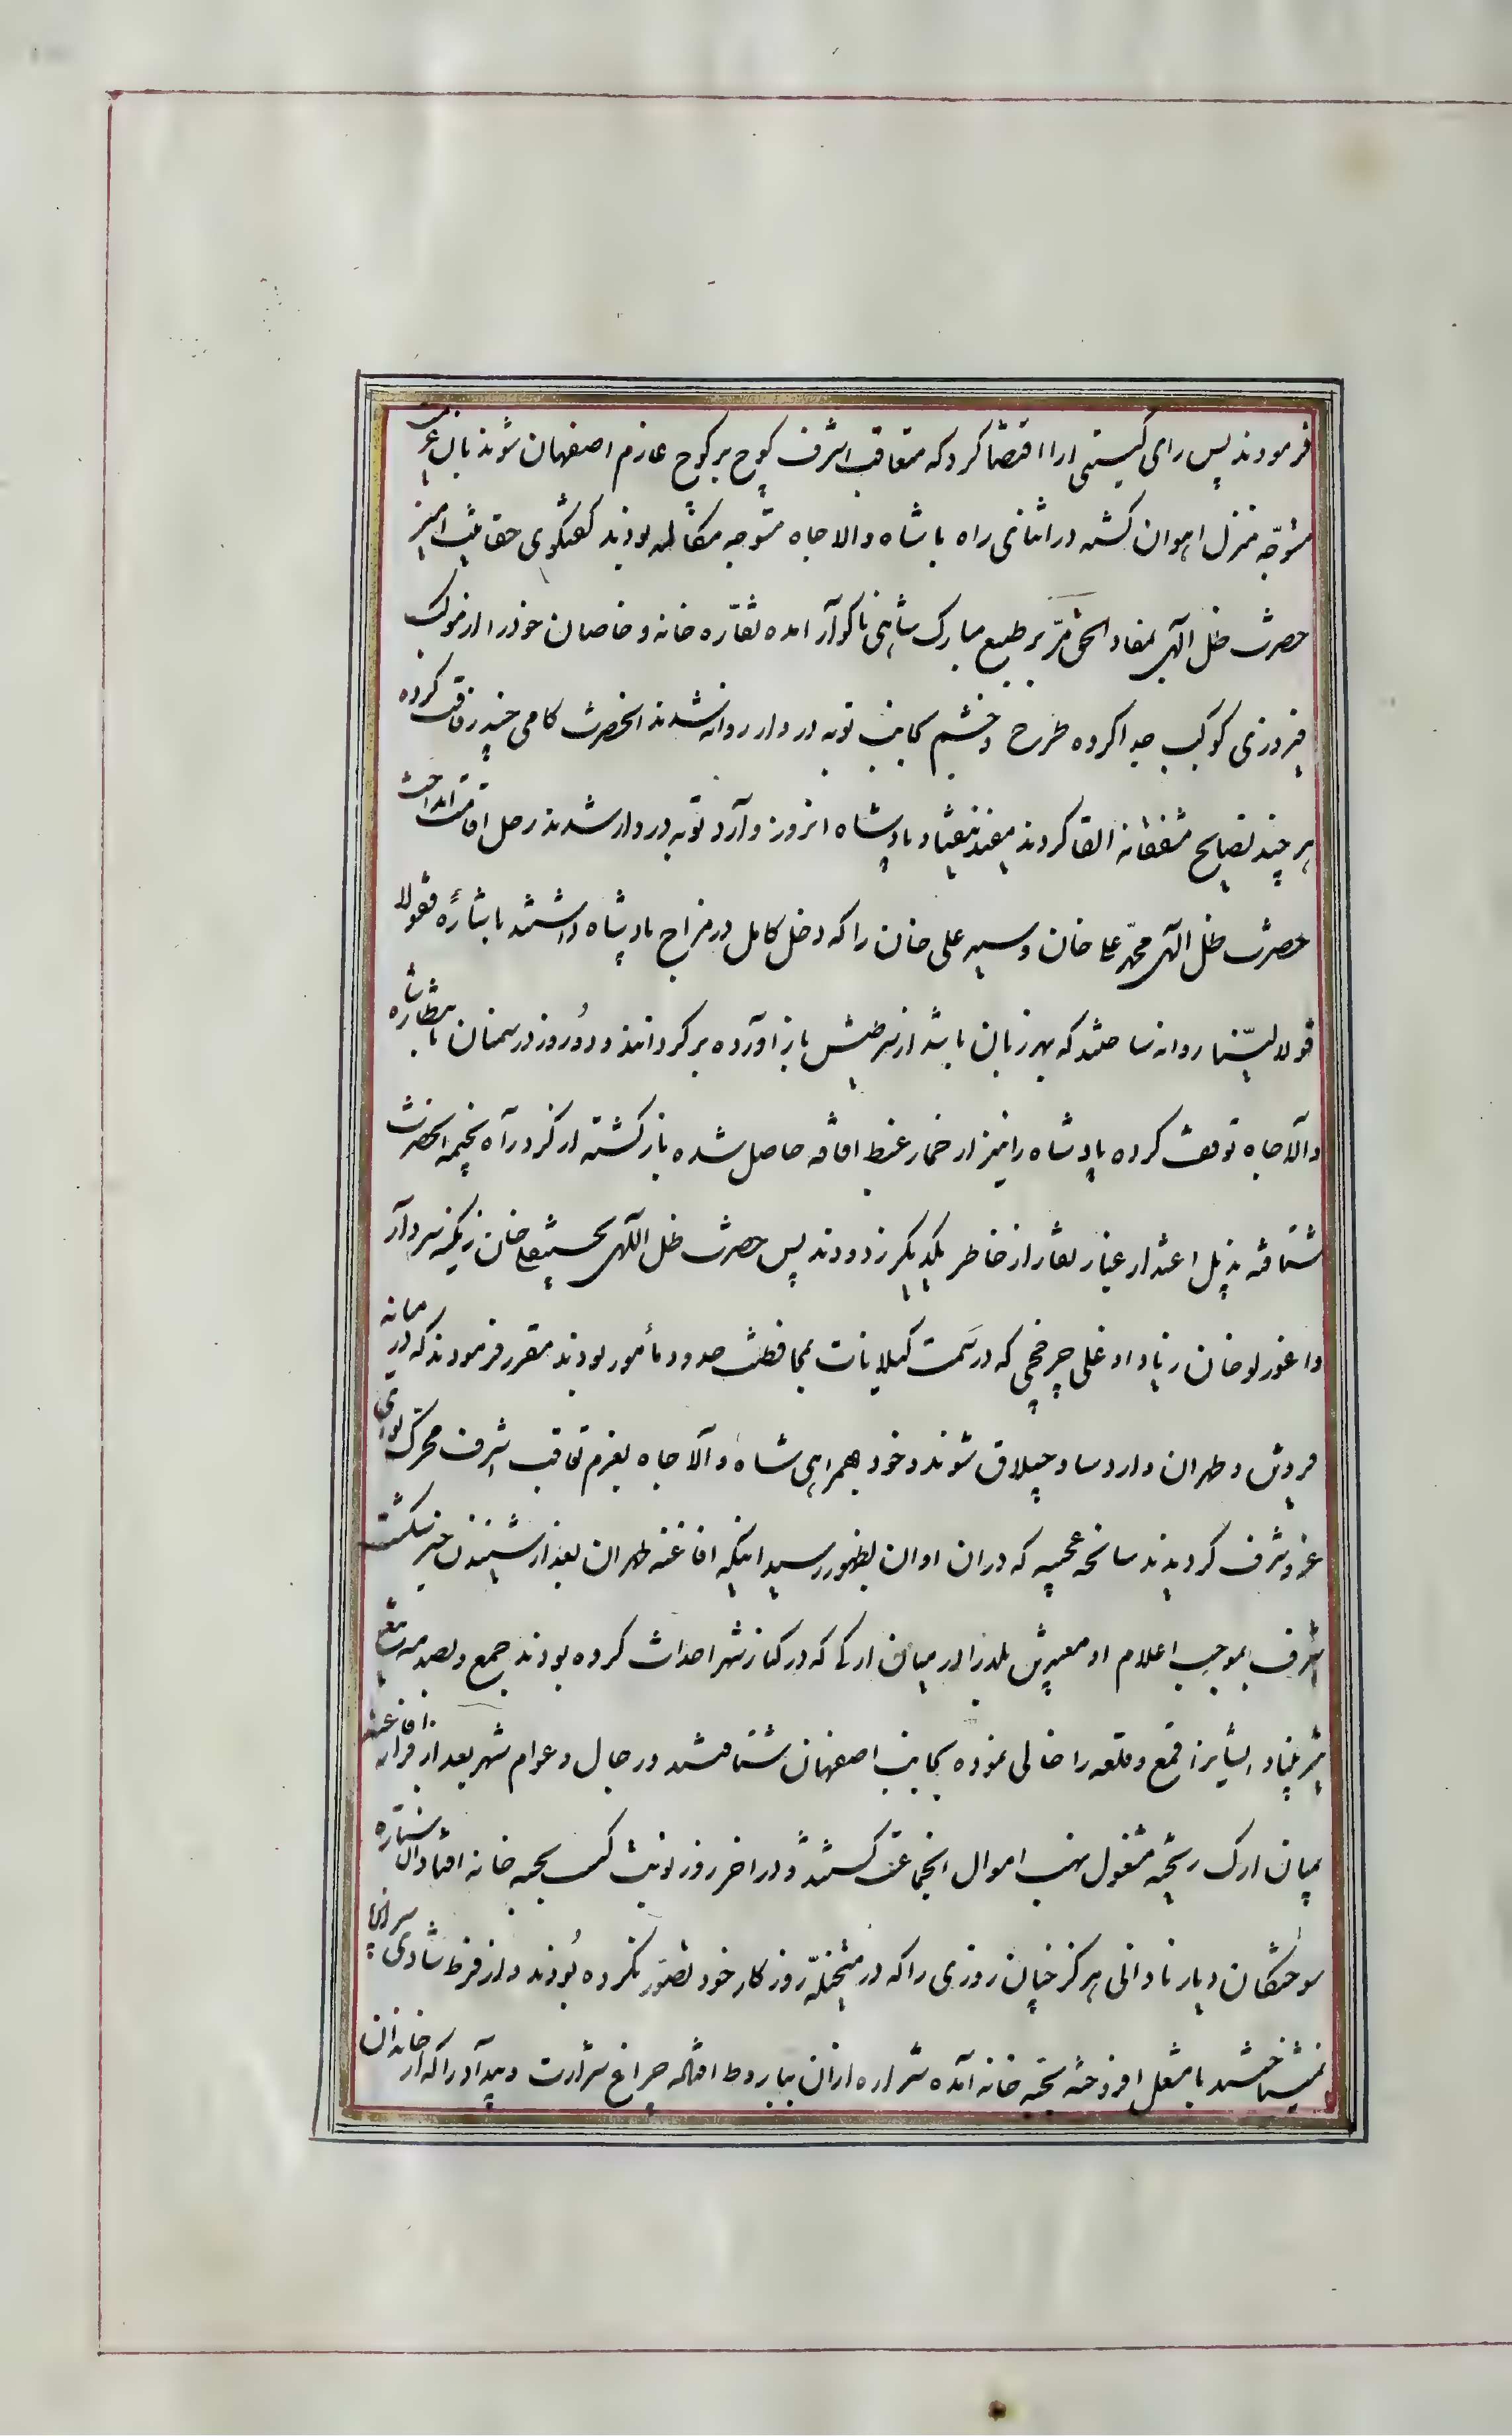 فرمودند پس رای گیتی ارا اقتضا کرد که متعاقب اشرف کوچ بر کوچ عازم اصفهان شوند بان عزیمت
متوجّه منزل اهوان کشته در اثنای راه با شاه والا جاه متوجه مکالمه بودند کفتکوی حقانیت امیز
حضرت ظل الهی بمفاد الحق مرّ بر طبع مبارک شاهی ناکوار امده نقاره خانه و خاصان خود را از موکب
فیروزی کوکب جدا کرده طرح و خشم بجانب تویه دروار روانه شدند انحضرت کامی چند رفاقت کرده
هر چند نصایح مشفقانه القا کردند مفید نیفتاد پادشاه انروز وارد تویه دروار شدند رحل اقامت انداخت
حضرت ظل الهی محمد علی خان و سید علی خان را که دخل کامل در مزاج پادشاه داشتند باشاره فقولا
قولا لیّنا روانه ساختند که بهر زبان باشد از سر طیش باز اورده بر کردانند و دو روز در سمنان بانتظار شاه
والا جاه توقف کرده پادشاه را نیز از خمار غیظ افاقه حاصل شده باز کشته از کرد راه بخیمه انحضرت
شتافته بذیل اعتذار غبار نقار از خاطر یکدیکر زدودند پس حضرت ظل اللهی بحسینقلی خان زنکنه سردار
و اغورلو خان زیاد اوغلی چرخچی که در سمت کیلانات بمحافظت حدود مأمور بودند مقرر فرمودند که در میانه
قزوین و طهران وارد ساوجبلاق شوند و خود بهمراهی شاه والا جاه بعزم تعاقب اشرف محرّک لوای
عز و شرف کردیدند سانحه عجیبه که دران اوان بظهور رسید اینکه افاغنه طهران بعد از شنیدن خبر شکست
اشرف بموجب اعلام او معتبرین بلد را در میان ارکی که در کنار شهر احداث کرده بودند جمع و بصدمه تیغ
شر بنیاد ایشانرا قمع و قلعه را خالی نموده بجانب اصفهان شتافتند و رجال و عوام شهر بعد از فرار افاغنه
بمیان ارک ریخته مشغول نهب اموال انجماعت کشتند و در اخر روز نوبت کسب بجبه خانه افتاد ان ستاره
سوختکان دیار نادانی هرکز چنان روزی را که در متخیّله روزکار خود تصوّر نکرده بودند و از فرط شادی سر از پا
نمیشناختند با مشعل افروخته بجبه خانه آمده شراره ازان بباروط افتاده چراغ شرارت و بیداد را که از خاندان